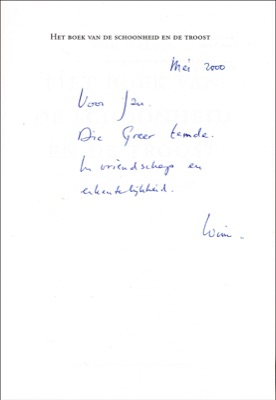 HET BOEK VAN DE SCHOONHEID EN DE TROOST
Mei 2000
Voor Jan.
Die Greer kende.
In vriendschap en
erkentelijkheid.
Wim.